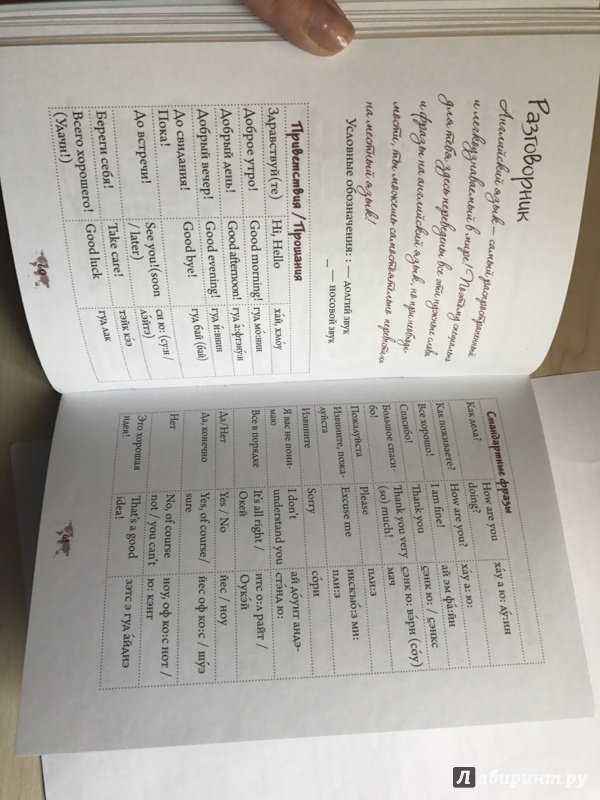 Разговорник
Английский язык — самый распространенный
и легкоузнаваемый в мире! Поэтому специально
для тебя здесь переведены все эти нужные слова
и фразы на английский язык, но при необходи-
мости, ты можешь самостоятельно перевести их
на местный язык!
Условные обозначения: : — долгий звук
_ — носовой звук
Приветствия / Прощания
Здравствуй(те) Hi, Hello ха́й, хэло́у
Доброе утро! Good morning! гуд мо́:нин
Добрый день! Good afternoon! гуд а:фтэну́:н
Добрый вечер! Good evening! гуд и́:внин
До свидания! Good bye! гуд бай (бай)
Пока!
До встречи! See you!(soon си ю: (су:н /
/ later) лэ́йтэ)
Береги себя! Take care! тэйк кээ
Всего хорошего! Good luck гуд лак
(Удачи!)
60
Стандартные фразы
Как дела? How are you ха́у а ю: ду́:ин
doing?
Как поживаете? How are you? ха́у а: ю:
Все хорошо! I am fine! ай эм фа́:йн
Спасибо! Thank you сэнк ю: / сэнкс
Большое спаси- Thank you very сэнк ю: вэ́ри (со́у)
бо! (so) much! мач
Пожалуйста Please пли:з
Извините, пожа- Excuse me икскъю́:з ми:
луйста пли:з
Извините Sorry со́ри
Я вас не пони- I don't ай до́унт андэ-
маю understand you стэ́нд ю:
Все в порядке It's all right / итс о:л райт /
Окей Оукэ́й
Да/Нет Yes / No йес / ноу
Да, конечно Yes, of course/ йес оф ко:с / шу́э
sure
Нет No, of course ноу, оф ко:с нот /
not / you can't ю: кэнт
Это хорошая That's a good зэтс э гуд айди́э
идея! idea!
61
Лабиринт.ру